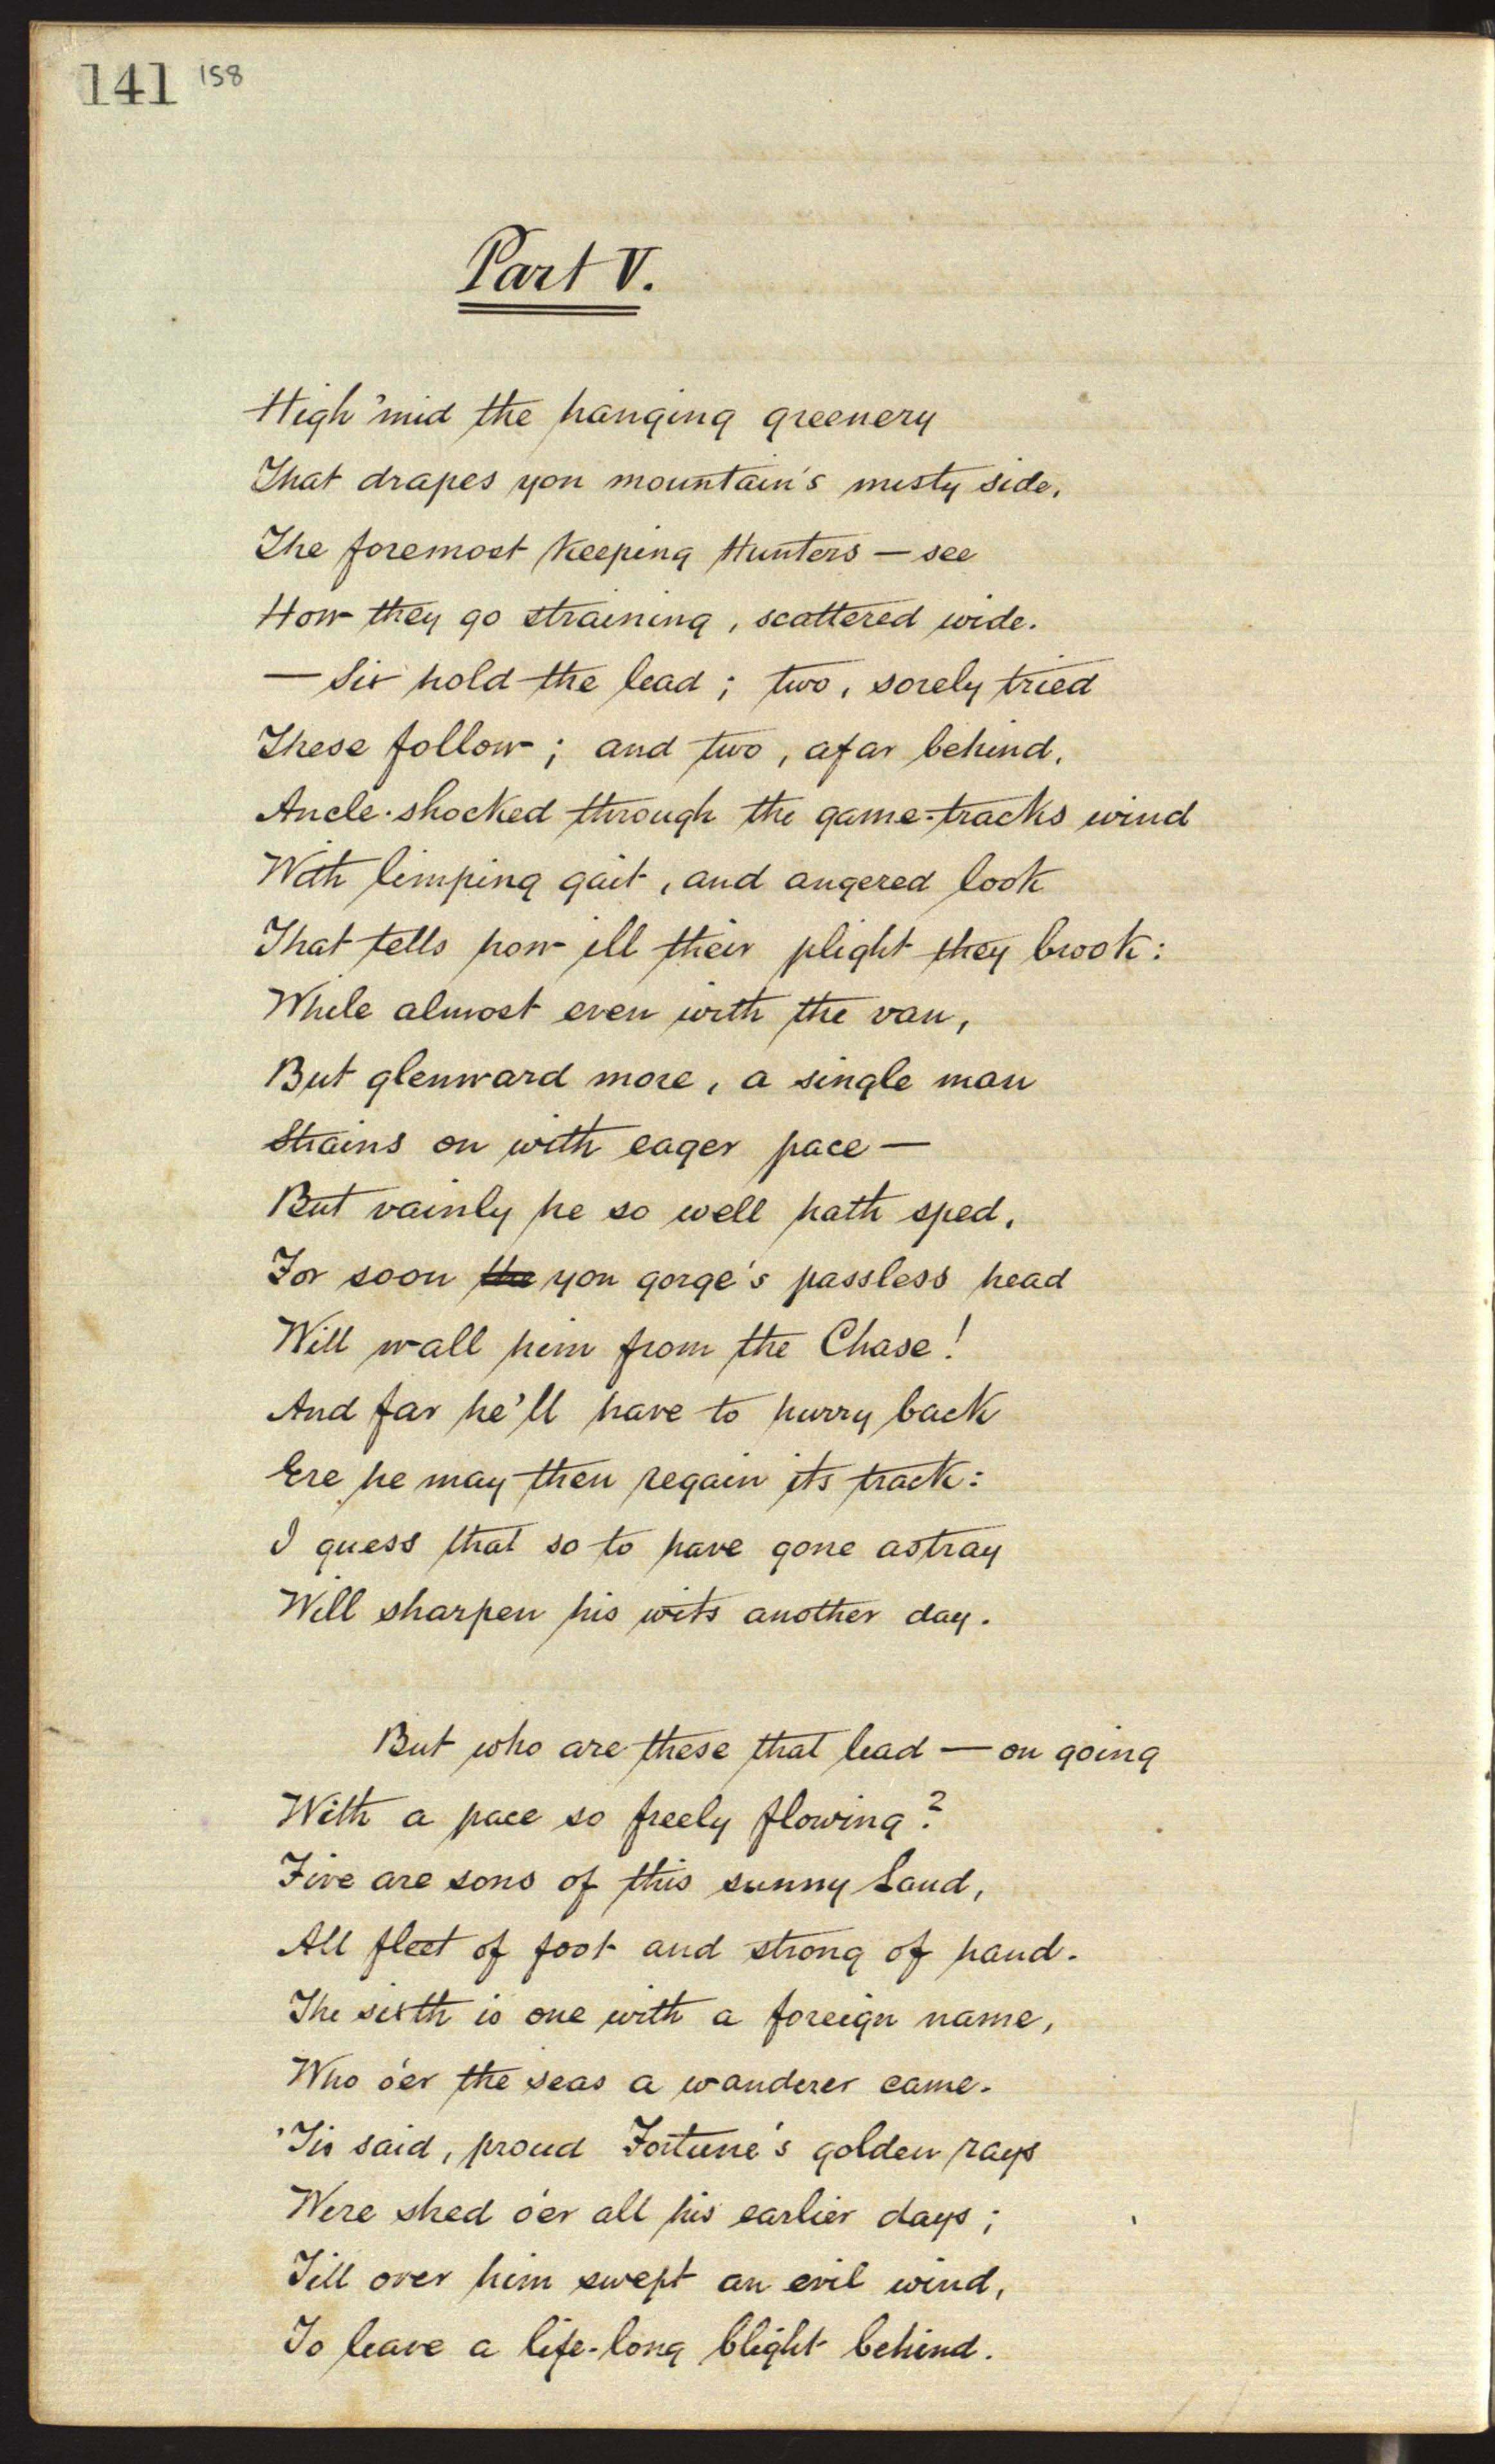 141 158
Part V.
High 'mid the hanging greenery
That drapes yon mountain's misty side,
The foremost keeping Hunters — see
How they go straining, scattered wide.
— Six hold the lead; two, sorely tried
These follow; and two, afar behind,
Ancle-shocked through the game-tracks wind
With limping gait, and angered look
That tells how ill their plight they brook:
While almost even with the van,
But glenward more, a single man
Strains on with eager pace —
But vainly he so well hath sped,
For soon the yon gorge's passless head
Will wall him from the Chase!
And far he'll have to hurry back
Ere he may then regain its track:
I guess that so to have gone astray
Will sharpen his wits another day.
But who are these that lead — on going
With a pace so freely flowing?
Five are sons of this sunny Land,
All fleet of foot and strong of hand.
The sixth is one with a foreign name,
Who o'er the seas a wanderer came.
'Tis said, proud Fortune's golden rays
Were shed o'er all his earlier days;
Till over him swept an evil wind,
To leave a life-long blight behind.